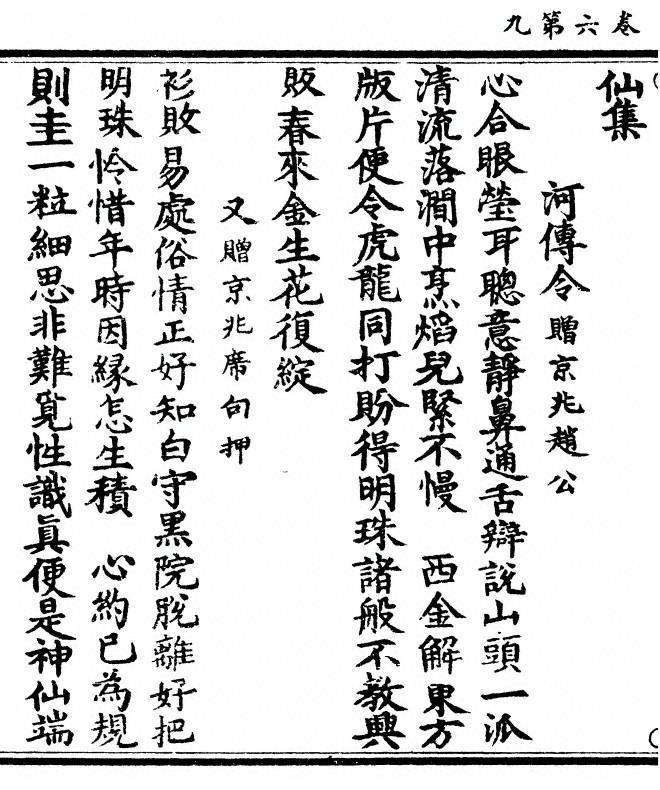 卷六第九
仙集
河傳令 贈京兆趙公
心合眼瑩耳聰意靜鼻通舌辯說山頭一派
清流落澗中烹焰兒緊不慢　西金解東方
版片便令虎龍同打盼得明珠諸般不教興
販春來金生花復綻
又 贈京兆席句押
衫敗易處俗情正好知白守黑院脫離好把
明珠怜惜年時因緣怎生積　心約已為規
則圭一粒細思非難覓性識眞便是神仙端